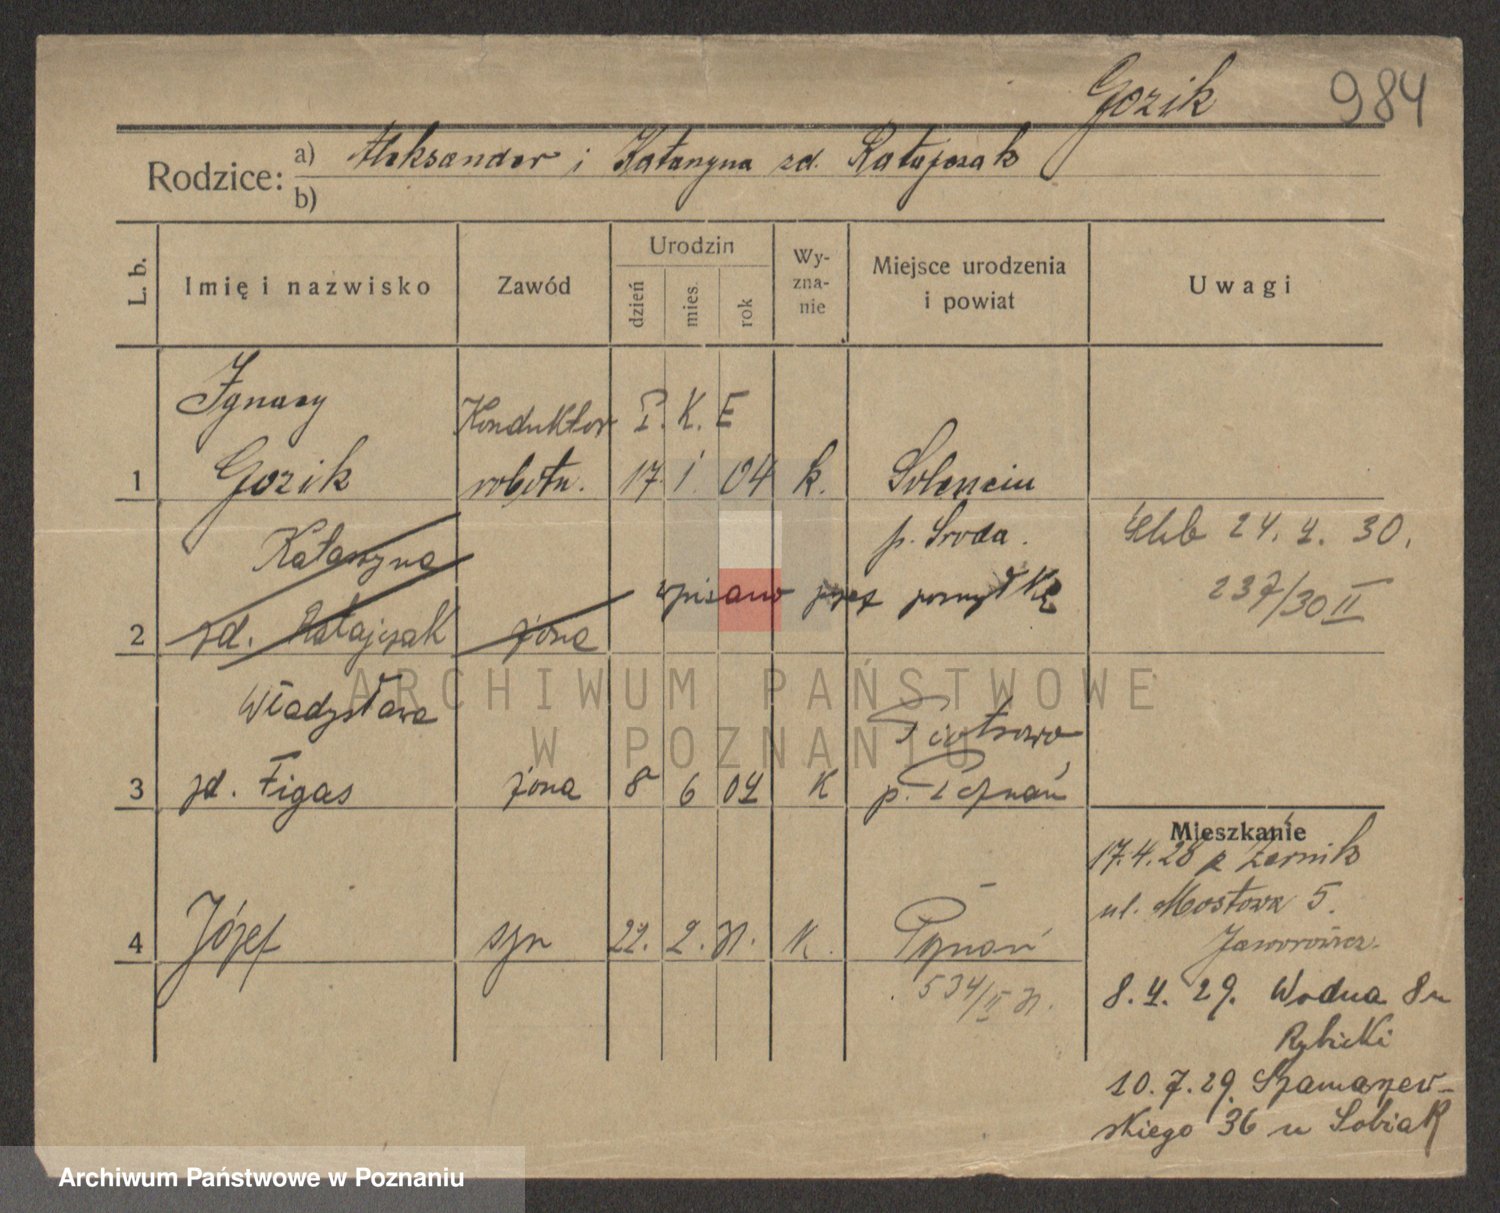 Gozik 984
Rodzice: a) Aleksander i Katarzyna zd. Ratajczak
b)
L. b. Imię i nazwisko Zawód Urodzin dzień mies. rok Wy-zna-nie Miejsce urodzenia i powiat Uwagi
Ignacy
Konduktor P. K. E
1 Gozik robotn. 17. 1 04 k. Solenciu
Katarzyna p. Środa. Ślub 24. 4. 30.
wpisano przez pomyłkę 237/30 II
2 zd. Ratajczak żona
Władysława Piotrowo,
3 zd. Figas żona 8 6 04 K p. Poznań
Mieszkanie
17.4.28 z Żernik
ul. Mostowa 5.
4 Józef syn 22. 2. 31. K. Poznań
534/II 31.
8. 4. 29. Wodna 8 u
Rybicki
10. 7. 29. Szamarzew-
skiego 36 u Sobiak
ARCHIWUM PAŃSTWOWE
W POZNANIU
Archiwum Państwowe w Poznaniu